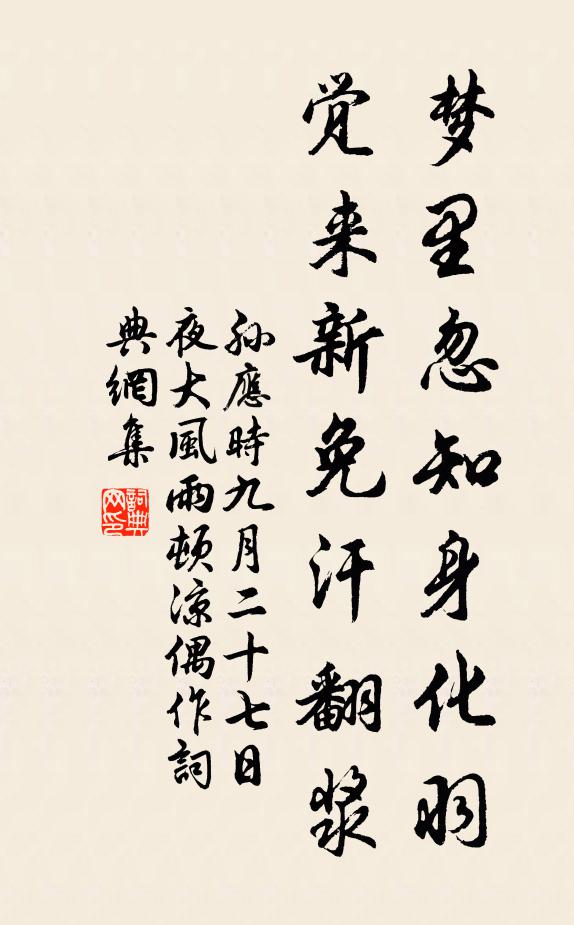 梦里忽知身化羽
觉来新免汗翻浆
孙應時九月二十七日
夜大風雨頓凉偶作詞
典網集
詞典网印